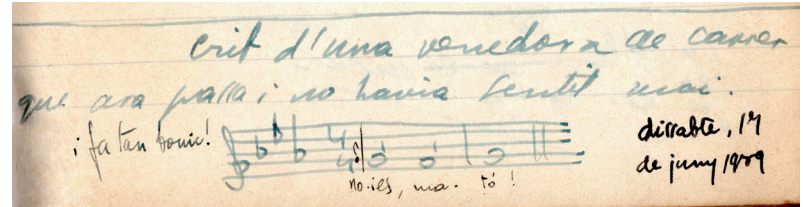 Crit d'una venedora de carrer
que ara passa i no havia sentit mai.
i fa tan bonic!
4
4
no-ies, ma-tó!
dissabte, 19
de juny 1909